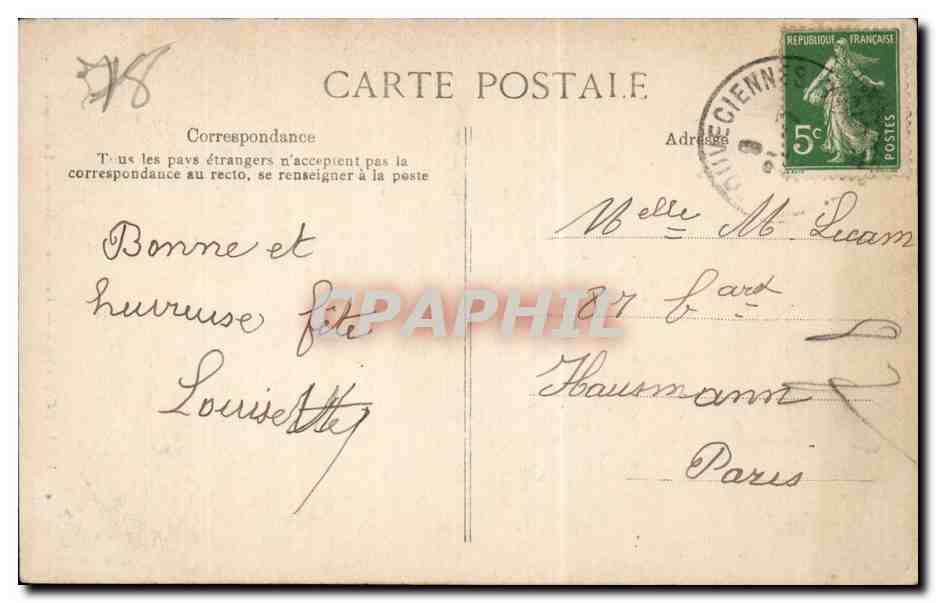 CARTE POSTALE
Correspondance
Tous les pays étrangers n'acceptent pas la
correspondance au recto, se renseigner à la poste
Bonne et
heureuse fête
Louisette
Adresse
REPUBLIQUE FRANÇAISE
5c
POSTES
Melle M. Lucam
87 bard
Hausmann
Paris
CPAPHIL